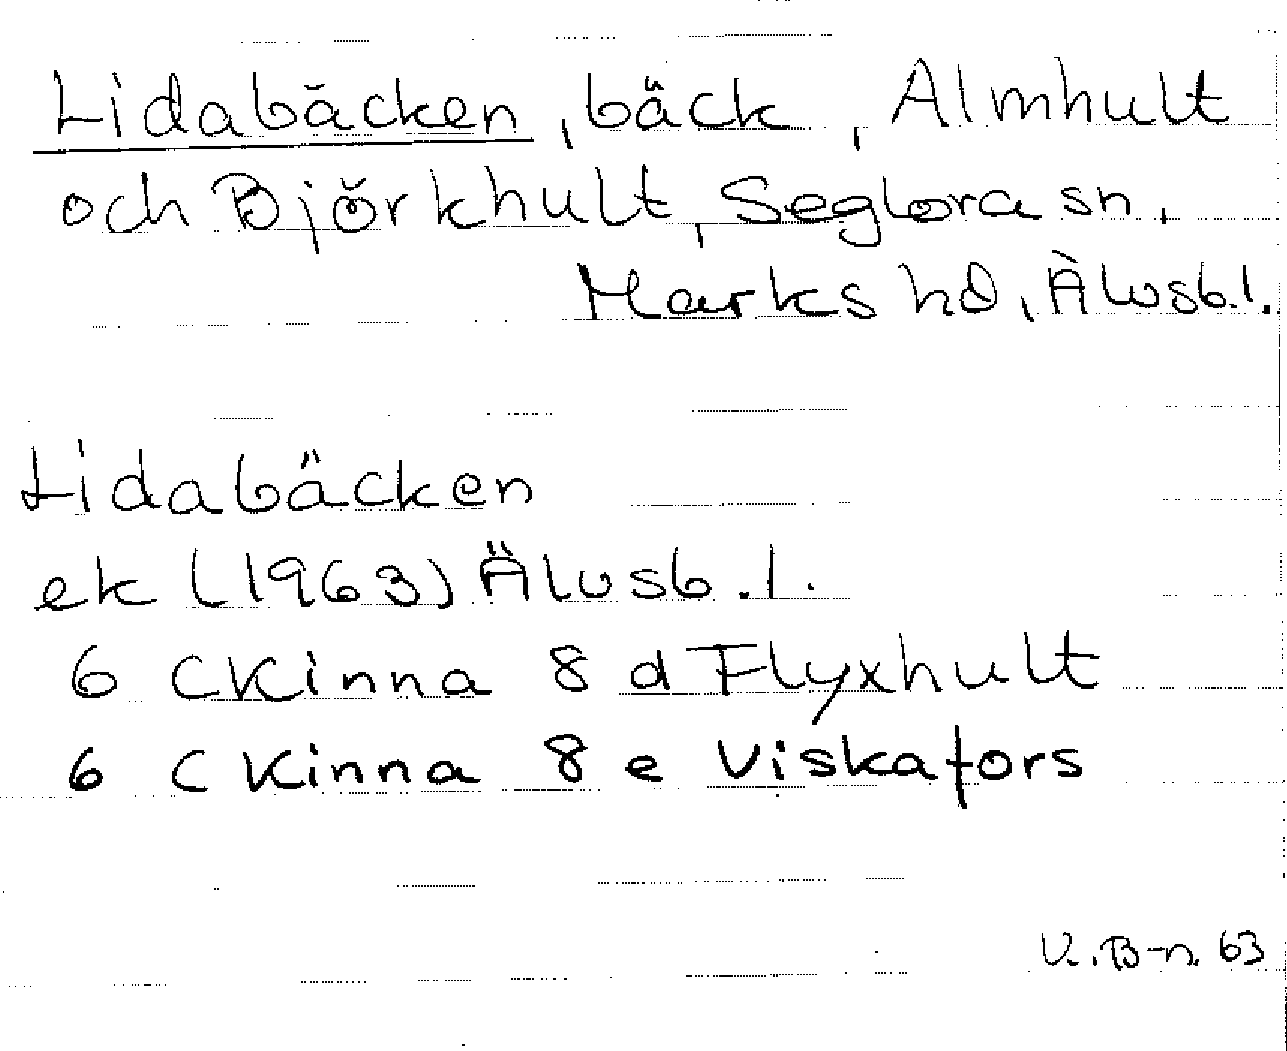 Lidabäcken, bäck, Almhult
och Björkhult, Seglora sn,
Marks hd, Älvsb.l.
Lidabäcken
ek (1963) Älvsb.l.
6 C Kinna 8 d Flyxhult
6 C Kinna 8 e Viskafors
V.B-n. 63